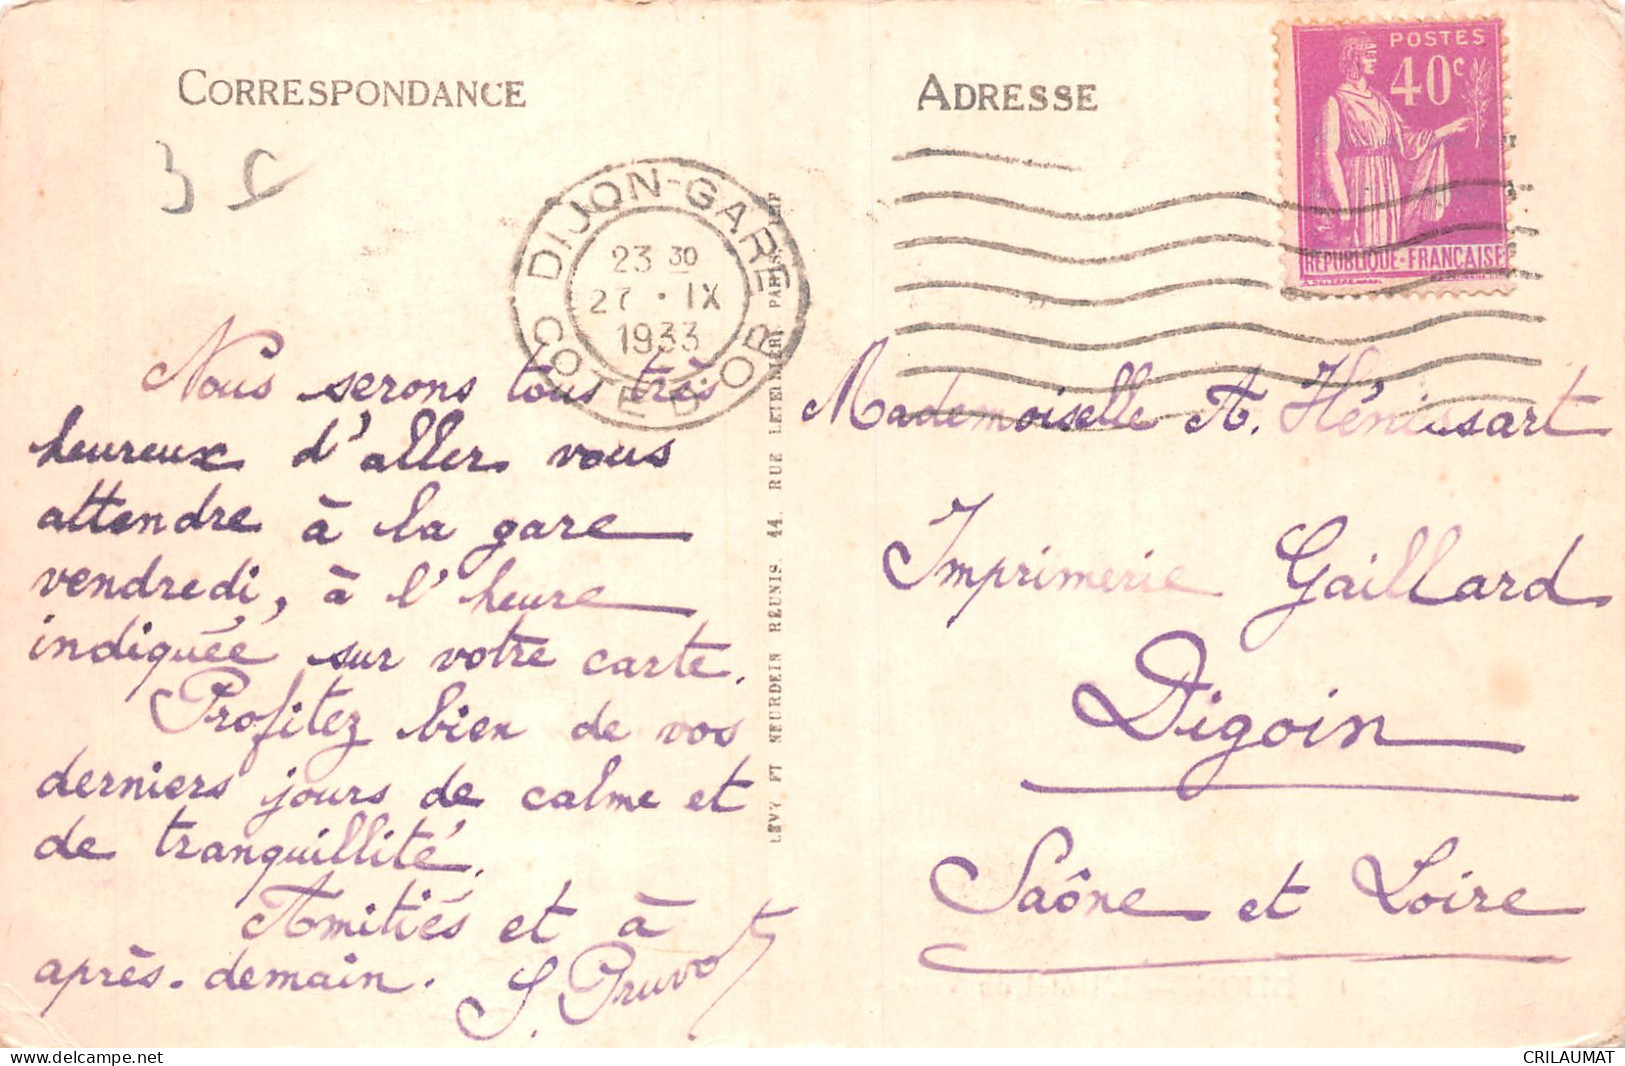 CORRESPONDANCE
3 C
Nous serons tous très
heureux d'aller vous
attendre à la gare
vendredi, à l'heure
indiquée sur votre carte.
Profitez bien de vos
derniers jours de calme et
de tranquillité.
Amitiés et à
après-demain. S. Pruvot
DIJON-GARE
23 30
27 · IX
1933
COTE D'OR
LÉVY ET NEURDEIN RÉUNIS. 44. RUE LETELLIER. PARIS. IMP
ADRESSE
POSTES
40c
REPUBLIQUE·FRANÇAISE
Mademoiselle A. Hénissart
Imprimerie Gaillard
Digoin
Saône et Loire
CRILAUMAT